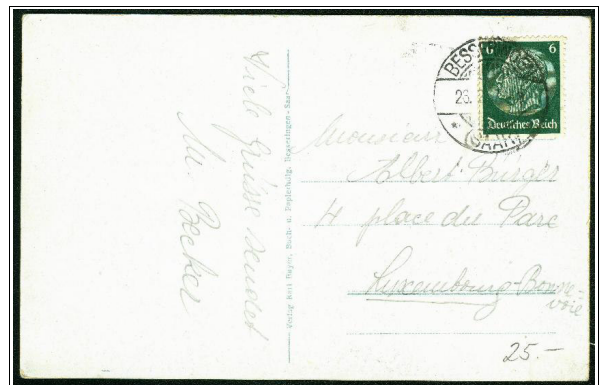 Viele Grüsse sendet
M. Becker
Verlag Karl Mayer, Buch- u. Papierhdlg. Besseringen-Saar
6 6
Deutsches Reich
BESS
26.
(SAAR)
Monsieur
Albert Burger
4 place du Parc
Luxembourg-Bonne-
voie
25.-